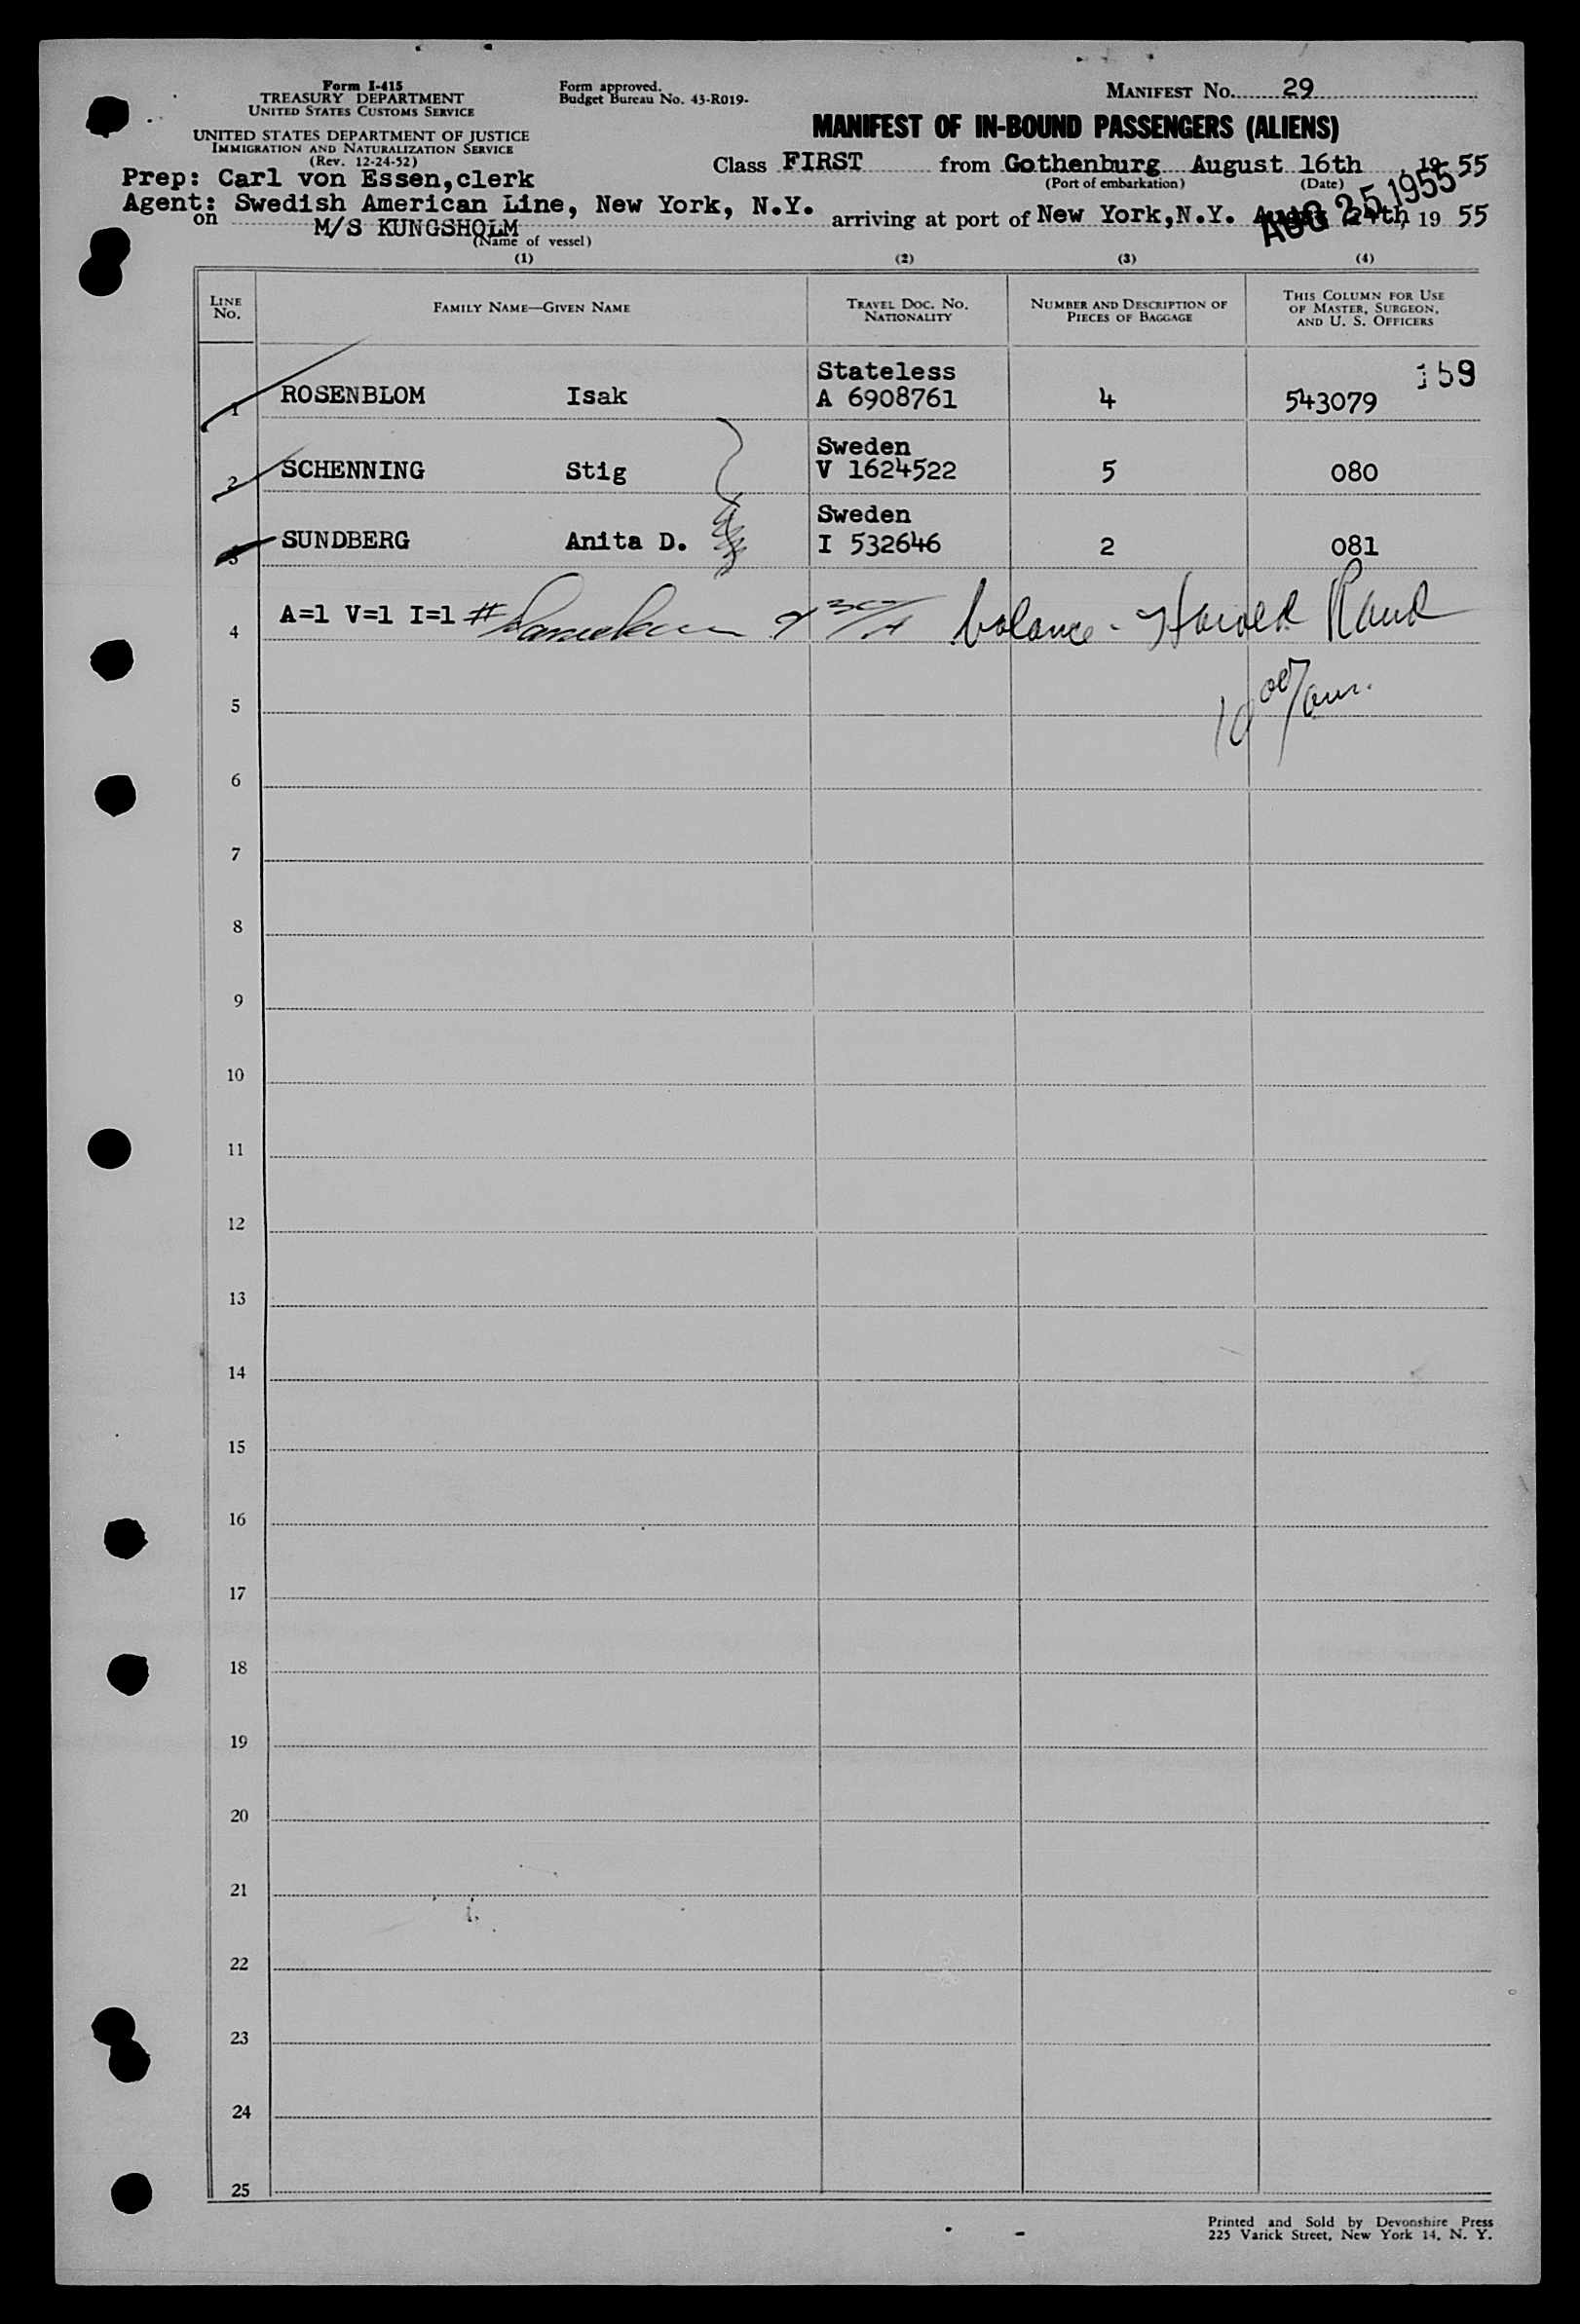 Form I-415
TREASURY DEPARTMENT
UNITED STATES CUSTOMS SERVICE
UNITED STATES DEPARTMENT OF JUSTICE
IMMIGRATION AND NATURALIZATION SERVICE
(Rev. 12-24-52)
Form approved.
Budget Bureau No. 43-R019-
MANIFEST No. 29
MANIFEST OF IN-BOUND PASSENGERS (ALIENS)
Class FIRST from Gothenburg August 16th 19 55
(Port of embarkation) (Date)
Prep: Carl von Essen,clerk
Agent: Swedish American Line, New York, N.Y.
on M/S KUNGSHOLM
(Name of vessel)
arriving at port of New York,N.Y. August 24th, 19 55
AUG 25 1955
(1) (2) (3) (4)
LINE No. FAMILY NAME—GIVEN NAME TRAVEL DOC. No. NATIONALITY NUMBER AND DESCRIPTION OF PIECES OF BAGGAGE THIS COLUMN FOR USE OF MASTER, SURGEON, AND U. S. OFFICERS
159
Stateless
1 ROSENBLOM Isak A 6908761 4 543079
Sweden
2 SCHENNING Stig V 1624522 5 080
Sweden
3 SUNDBERG Anita D. I 532646 2 081
4 A=1 V=1 I=1 # balance - Harold Rand
10 00/am.
5
6
7
8
9
10
11
12
13
14
15
16
17
18
19
20
21
22
23
24
25
Printed and Sold by Devonshire Press
225 Varick Street, New York 14, N. Y.